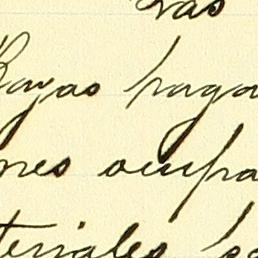 Las
Rayas paga
nes ocupa
teriales